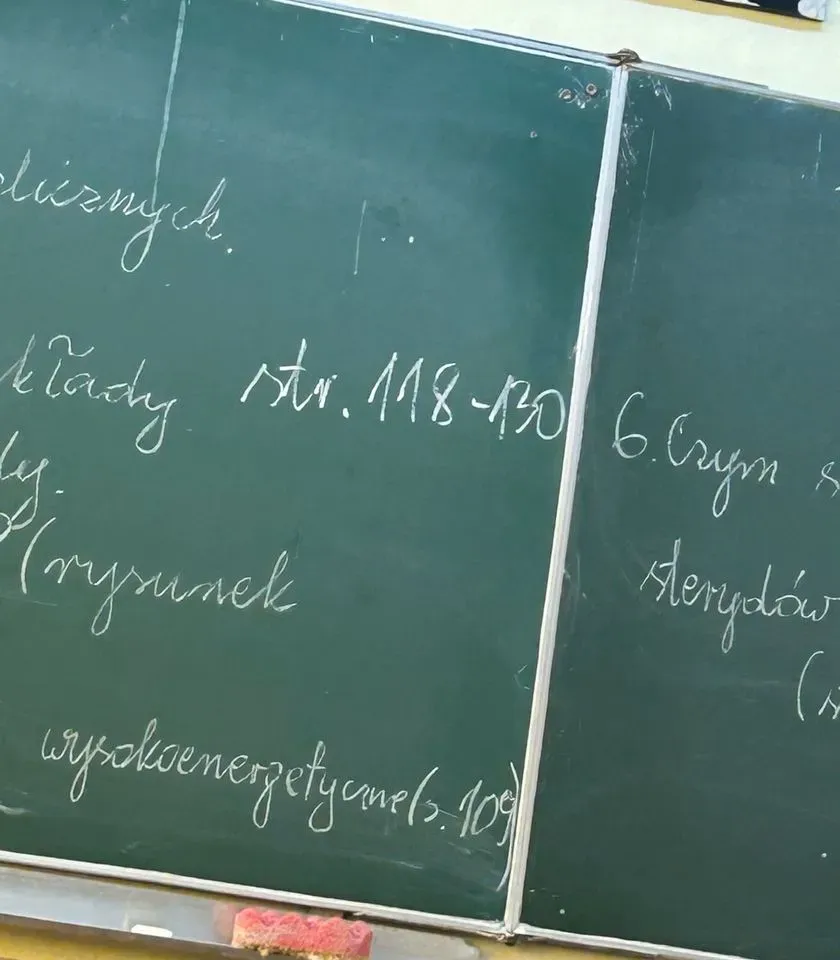 licznych.
kłady str. 118-130
(rysunek
wysokoenergetyczne (s. 109)
6. Czym
sterydów